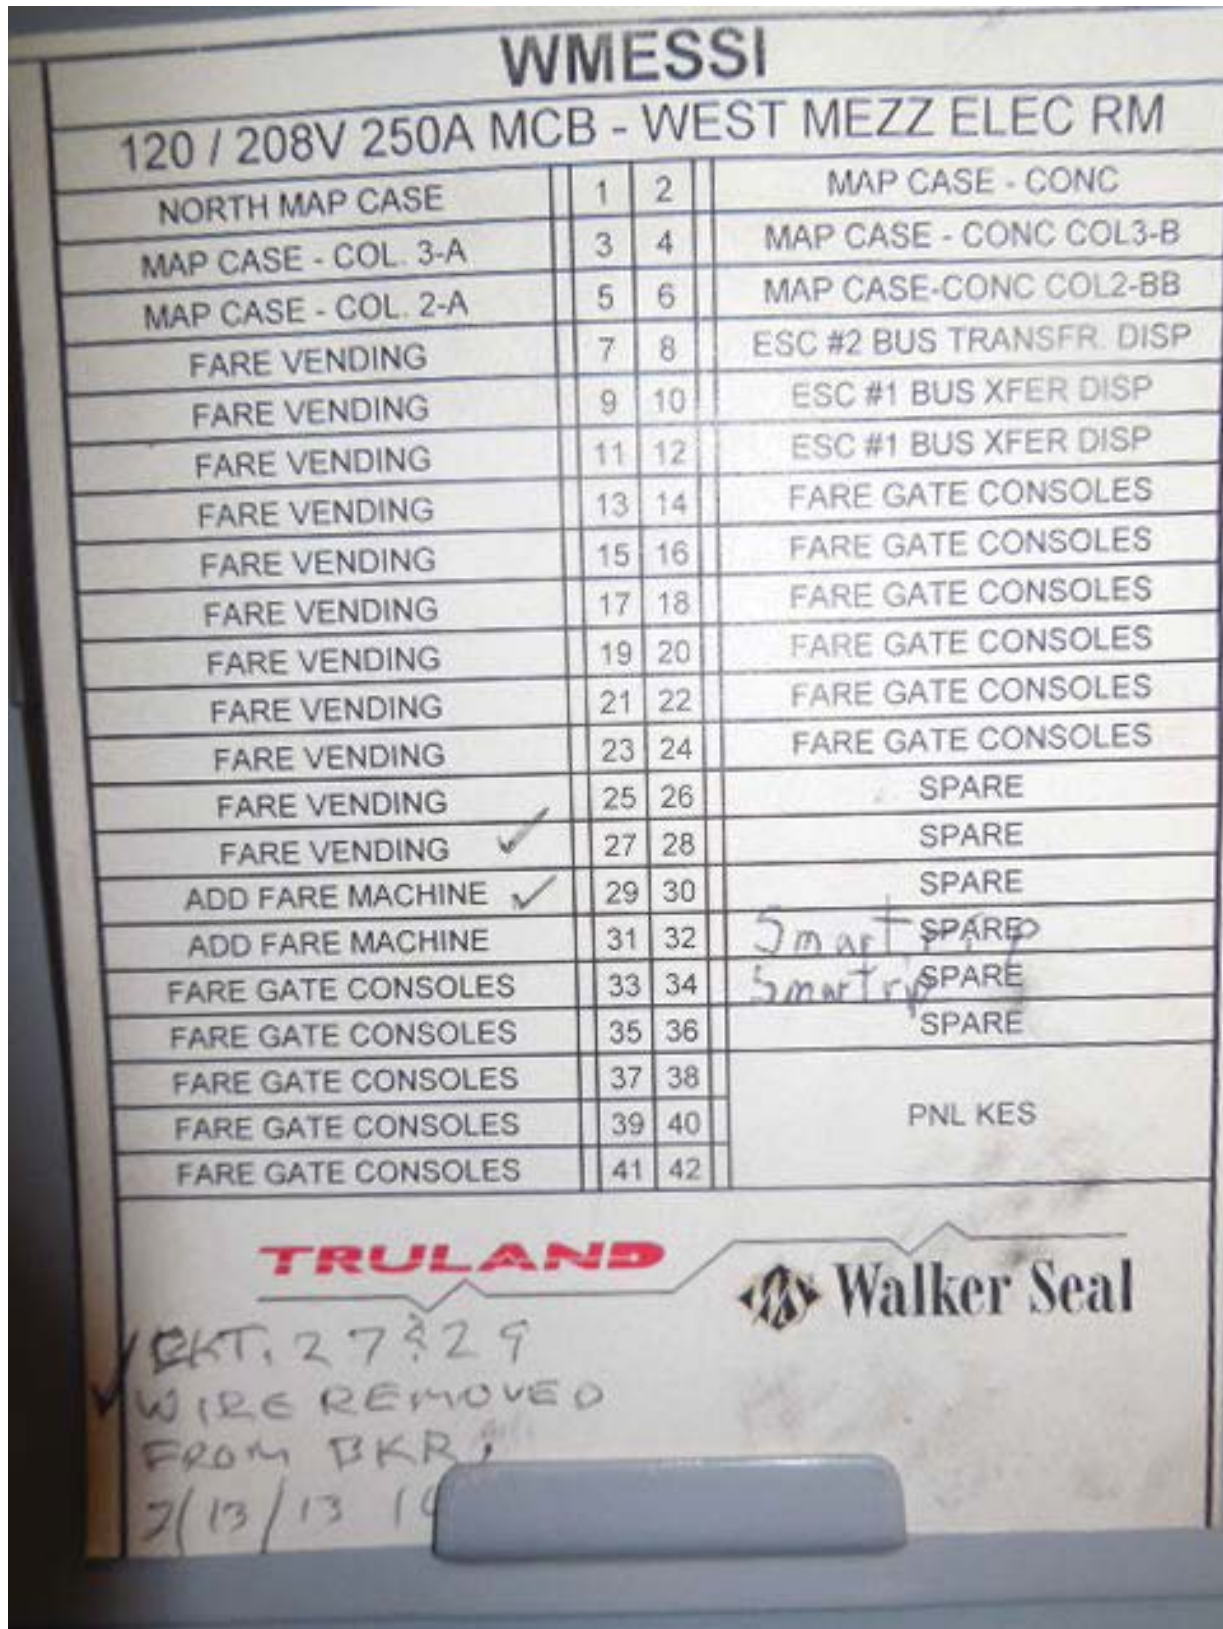 WMESSI
120 / 208V 250A MCB - WEST MEZZ ELEC RM
NORTH MAP CASE 1 2 MAP CASE - CONC
MAP CASE - COL. 3-A 3 4 MAP CASE - CONC COL3-B
MAP CASE - COL. 2-A 5 6 MAP CASE-CONC COL2-BB
FARE VENDING 7 8 ESC #2 BUS TRANSFR. DISP
FARE VENDING 9 10 ESC #1 BUS XFER DISP
FARE VENDING 11 12 ESC #1 BUS XFER DISP
FARE VENDING 13 14 FARE GATE CONSOLES
FARE VENDING 15 16 FARE GATE CONSOLES
FARE VENDING 17 18 FARE GATE CONSOLES
FARE VENDING 19 20 FARE GATE CONSOLES
FARE VENDING 21 22 FARE GATE CONSOLES
FARE VENDING 23 24 FARE GATE CONSOLES
FARE VENDING 25 26 SPARE
FARE VENDING ✓ 27 28 SPARE
ADD FARE MACHINE ✓ 29 30 SPARE
ADD FARE MACHINE 31 32 Smartrip SPARE
FARE GATE CONSOLES 33 34 Smartrip SPARE
FARE GATE CONSOLES 35 36 SPARE
FARE GATE CONSOLES 37 38
FARE GATE CONSOLES 39 40 PNL KES
FARE GATE CONSOLES 41 42
TRULAND
Walker Seal
CKT. 27 & 29
✓ WIRE REMOVED
FROM BKR.
7/13/13